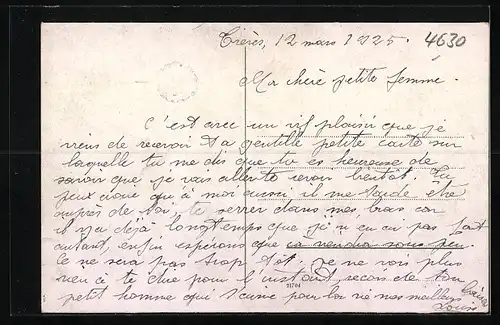 Trèves, 12 mars 1925. 4630
Ma chère petite femme.
C'est avec un vif plaisir que je
viens de recevoir ta gentille petite carte sur
laquelle tu me dis que tu es heureuse de
savoir que je vais aller te revoir bientôt. Tu
peux croire qu'à moi aussi il me tarde être
auprès de toi, te serrer dans mes bras car
il y a déjà longtemps que j'ai pu en
autant, enfin espérons que ca viendra sous peu.
Ce ne sera pas trop tôt. Je ne vois plus
rien à te dire pour l'instant, reçois de ton
petit homme qui t'aime pour la vie nos meilleurs baisers
Louis
21704